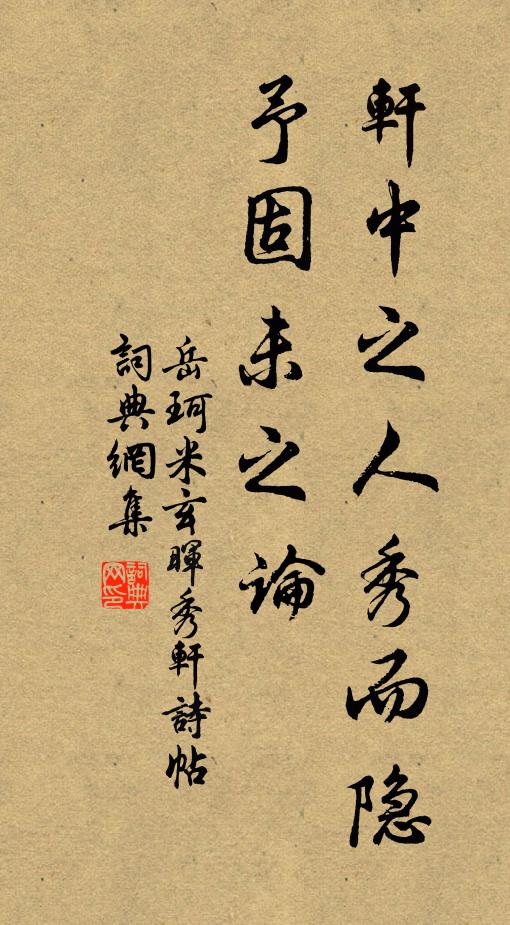 軒中之人秀而隐
予固未之論
岳珂米玄暉秀軒詩帖
詞典網集
詞典网印